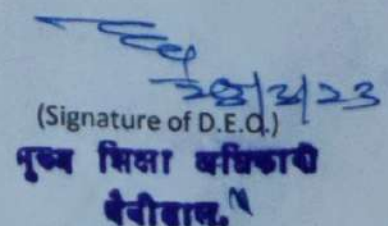 28/3/23
(Signature of D.E.O.)
मुख्य शिक्षा अधिकारी
नैनीताल